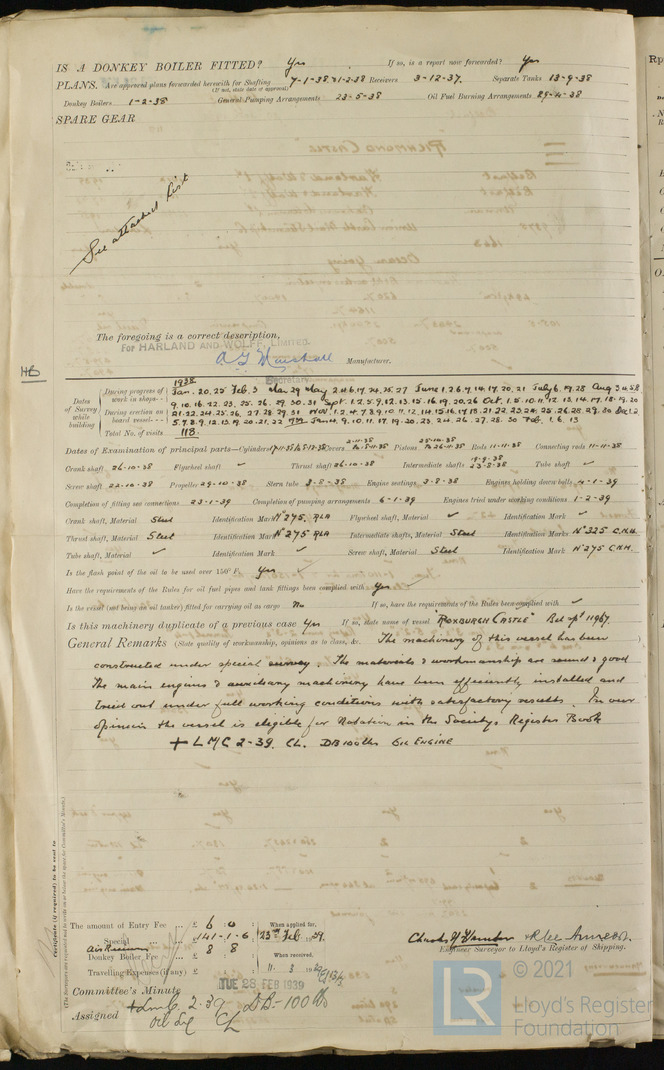 IS A DONKEY BOILER FITTED? Yes If so, is a report now forwarded? Yes
PLANS. Are approved plans forwarded herewith for Shafting 7-1-38 & 1-2-38 Receivers 3-12-37. Separate Tanks 13-9-38
(If not, state date of approval)
Donkey Boilers 1-2-38 General Pumping Arrangements 23-5-38 Oil Fuel Burning Arrangements 29-4-38
SPARE GEAR
See attached list
The foregoing is a correct description,
For HARLAND AND WOLFF, LIMITED
Manufacturer.
Secretary
HB
1938
Dates of Survey while building
During progress of work in shops-- Jan. 20, 25 Feb. 3 Mar 29 May 2 4 6 17 24, 25, 27 June 1, 2 6, 9, 14, 17, 20, 21 July 6, 19, 28 Aug 3, 4, 5, 8
9, 10, 16, 22, 23, 25, 26, 29, 30, 31 Sept. 1, 2, 5, 9, 12, 13, 15, 16, 19, 20, 26 Oct, 1, 5, 10, 11, 12, 13, 14, 17, 18, 19, 20
During erection on board vessel--- 21, 22, 24, 25, 26, 27, 28, 29, 31 Nov 1, 2, 4, 7, 8, 9, 10, 11, 12, 14, 15, 16, 17, 18, 21, 22, 23, 24, 25, 26, 28, 29, 30 Dec 1, 2
5, 7, 8, 9, 12, 13, 19, 20, 21, 22 1939 Jan 4, 9, 10, 11, 17, 19, 20, 23, 24, 26, 27, 28, 30 Feb, 1, 6, 13
Total No. of visits 118.
Dates of Examination of principal parts—Cylinders Covers Pistons Rods 11-11-38 Connecting rods 11-11-38
Crank shaft 26-10-38 Flywheel shaft ✓ Thrust shaft 26-10-38 Intermediate shafts 23-8-38 Tube shaft ✓
Screw shaft 22-10-38 Propeller 29-10-38 Stern tube 3-8-38 Engine seatings 3-8-38 Engines holding down bolts 4-1-39
Completion of fitting sea connections 23-1-39 Completion of pumping arrangements 6-1-39 Engines tried under working conditions 1-2-39
Crank shaft, Material Steel Identification Mark No 275, RLA Flywheel shaft, Material ✓ Identification Mark ✓
Thrust shaft, Material Steel Identification Mark No 275 RLA Intermediate shafts, Material Steel Identification Marks No 325 C.H.H.
Tube shaft, Material ✓ Identification Mark ✓ Screw shaft, Material Steel Identification Mark No 275 C.H.H.
Is the flash point of the oil to be used over 150° F. Yes ✓
Have the requirements of the Rules for oil fuel pipes and tank fittings been complied with Yes ✓
Is the vessel (not being an oil tanker) fitted for carrying oil as cargo No If so, have the requirements of the Rules been complied with ✓
Is this machinery duplicate of a previous case Yes If so, state name of vessel "ROXBURGH CASTLE" Bel rpt 11967.
General Remarks (State quality of workmanship, opinions as to class, &c. The machinery of this vessel has been
constructed under special survey. The materials & workmanship are sound & good
The main engine & auxiliary machinery have been efficiently installed and
tried out under full working conditions with satisfactory results. In our
opinion the vessel is eligible for Notation in the Society's Register Book
+ LMC 2-39. CL. DB 100 lbs OIL ENGINE
Certificate (if required) to be sent to
(The Surveyors are requested not to write on or below the space for Committee's Minute.)
The amount of Entry Fee .. £ 6 : 0 : When applied for,
Special ... £ 141-1-6 23rd Feb 1939.
Air Receivers
Donkey Boiler Fee ... £ 8 : 8 : When received,
Travelling Expenses (if any) £ : : 11. 3 1939
Engineer Surveyor to Lloyd's Register of Shipping.
Committee's Minute TUE 28 FEB 1939
Assigned + LMC 2.39 DB-100 lb
Oil Eng CL
LR
© 2021
Lloyd's Register
Foundation